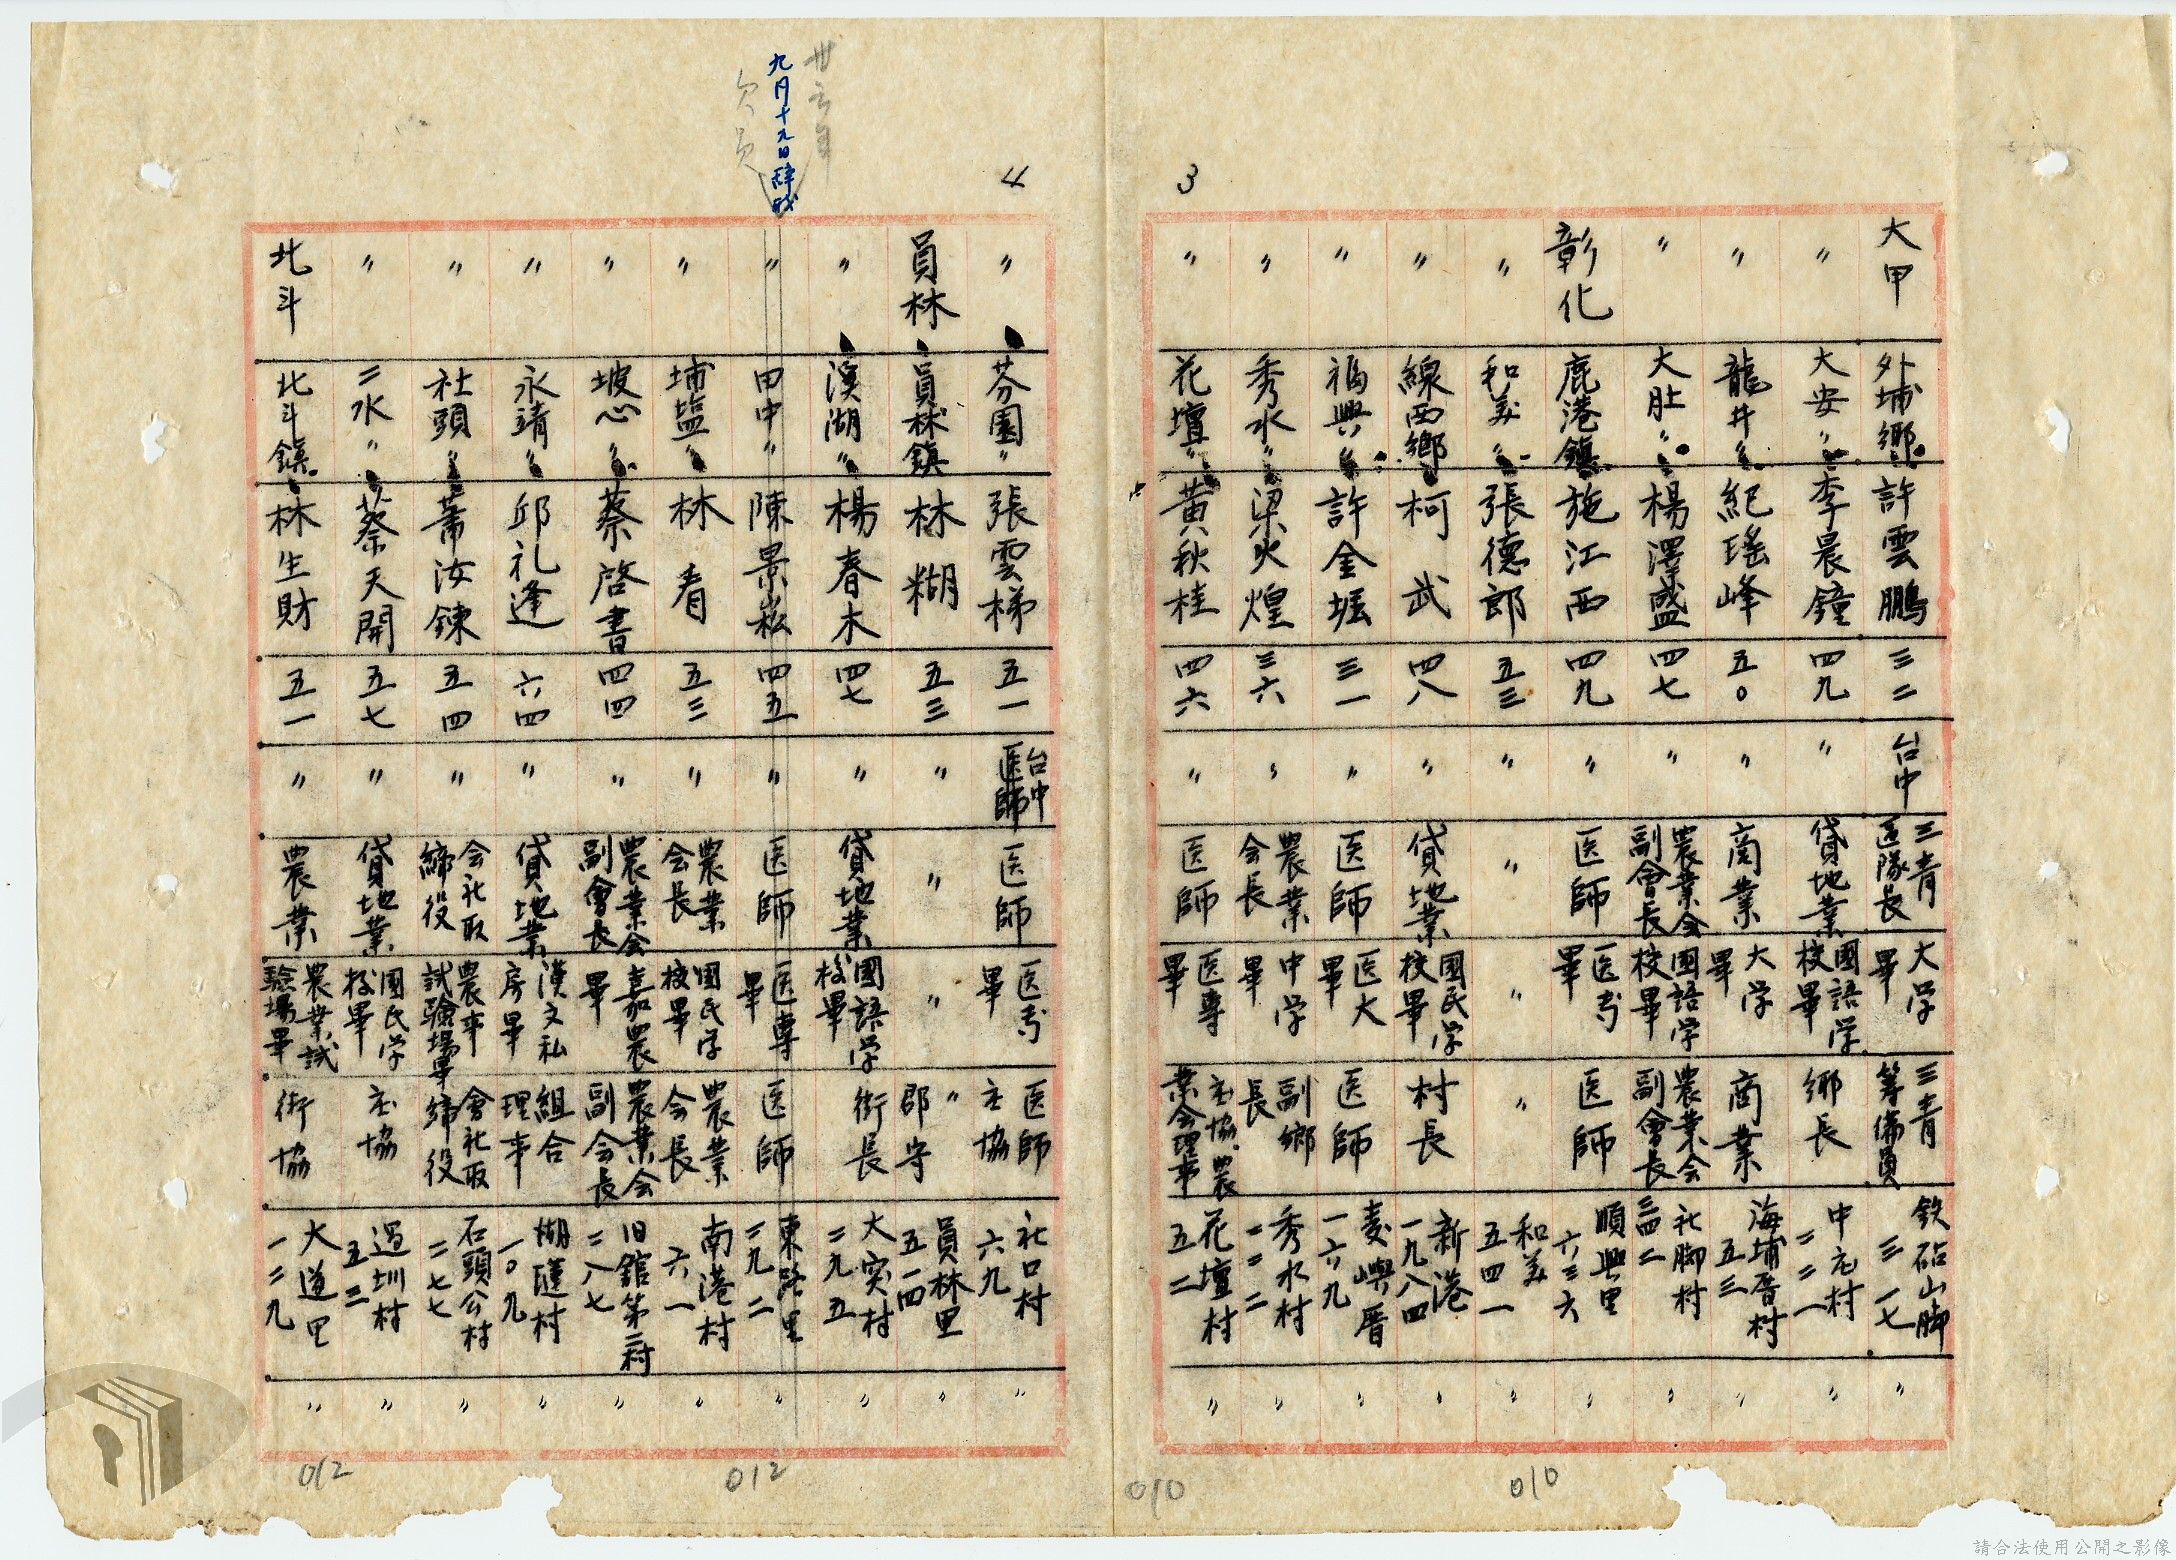 3
大甲 外埔鄉 許雲鵬 三二 台中 三青區隊長 大学畢 三青等備員 鉄砧山脚三一七 〃
〃 大安〃 李晨鐘 四九 〃 貸地業 國語学校畢 鄉長 中庄村二二一 〃
〃 龍井〃 紀瑤峰 五〇 〃 商業 大学畢 商業 海埔厝村五三 〃
〃 大肚〃 楊澤盛 四七 〃 農業会副會長 國語学校畢 農業会副會長 社脚村三四二 〃
彰化 鹿港鎮 施江西 四九 〃 医師 医专畢 医師 順興里六三六 〃
〃 和美〃 張德郎 五三 〃 〃 〃 〃 和美五四一 〃
〃 線西鄉 柯武 四八 〃 貸地業 國民学校畢 村長 新港一九八四 〃
〃 福興〃 許金 三一 〃 医師 医大畢 医師 麦嶼厝一六九 〃
〃 秀水〃 梁火煌 三六 〃 農業会長 中学畢 副鄉長 秀水村一二二 〃
〃 花壇〃 黃秋桂 四六 〃 医師 医專畢 庄協、農業会理事 花壇村五二 〃
4
〃 芬園〃 張雲梯 五一 台中医師 医師 医专畢 医師庄協 社口村六九 〃
員林 員林鎮 林糊 五三 〃 〃 〃 〃郡守 員林里五一四 〃
〃 溪湖〃 楊春木 四七 〃 貸地業 國語学校畢 街長 大突村二九五 〃
卅五年
九月十九日辭職
欠員
〃 田中〃 陳景崧 四五 〃 医師 医專畢 医師 東路里二九二 〃
〃 埔塩〃 林看 五三 〃 農業会長 國民学校畢 農業会長 南港村六一 〃
〃 坡心〃 蔡啓書 四四 〃 農業会副會長 嘉農畢 農業会副会長 旧舘第二村二八七 〃
〃 永靖〃 邱礼逢 六四 〃 貸地業 漢文私房畢 組合理事 湖村一〇九 〃
〃 社頭〃 蕭汝鍊 五四 〃 会社取締役 農事試驗場畢 會社取締役 石頭公村二七七 〃
〃 二水〃 蔡天開 五七 〃 貸地業 國民学校畢 庄協 過圳村五三 〃
北斗 北斗鎮 林生財 五一 〃 農業 農業試驗場畢 街協 大道里一二九 〃
012
012
010
010
請合法使用公開之影像